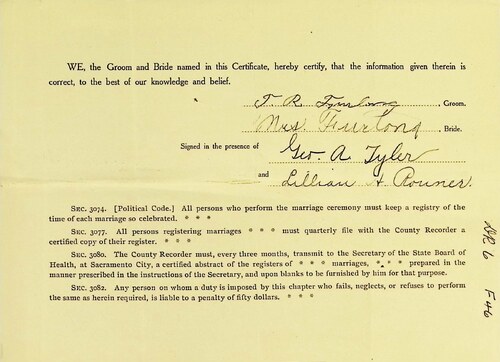 WE, the Groom and Bride named in this Certificate, hereby certify, that the information given therein is
correct, to the best of our knowledge and belief.
T. R. Furlong, Groom.
Mrs. Furlong, Bride.
Signed in the presence of Geo. A Tyler
and Lillian H Rouner.
SEC. 3074. [Political Code.] All persons who perform the marriage ceremony must keep a registry of the
time of each marriage so celebrated. * * *
SEC. 3077. All persons registering marriages * * * must quarterly file with the County Recorder a
certified copy of their register. * * *
SEC. 3080. The County Recorder must, every three months, transmit to the Secretary of the State Board of
Health, at Sacramento City, a certified abstract of the registers of * * * marriages, * * * prepared in the
manner prescribed in the instructions of the Secretary, and upon blanks to be furnished by him for that purpose.
SEC. 3082. Any person on whom a duty is imposed by this chapter who fails, neglects, or refuses to perform
the same as herein required, is liable to a penalty of fifty dollars. * * *